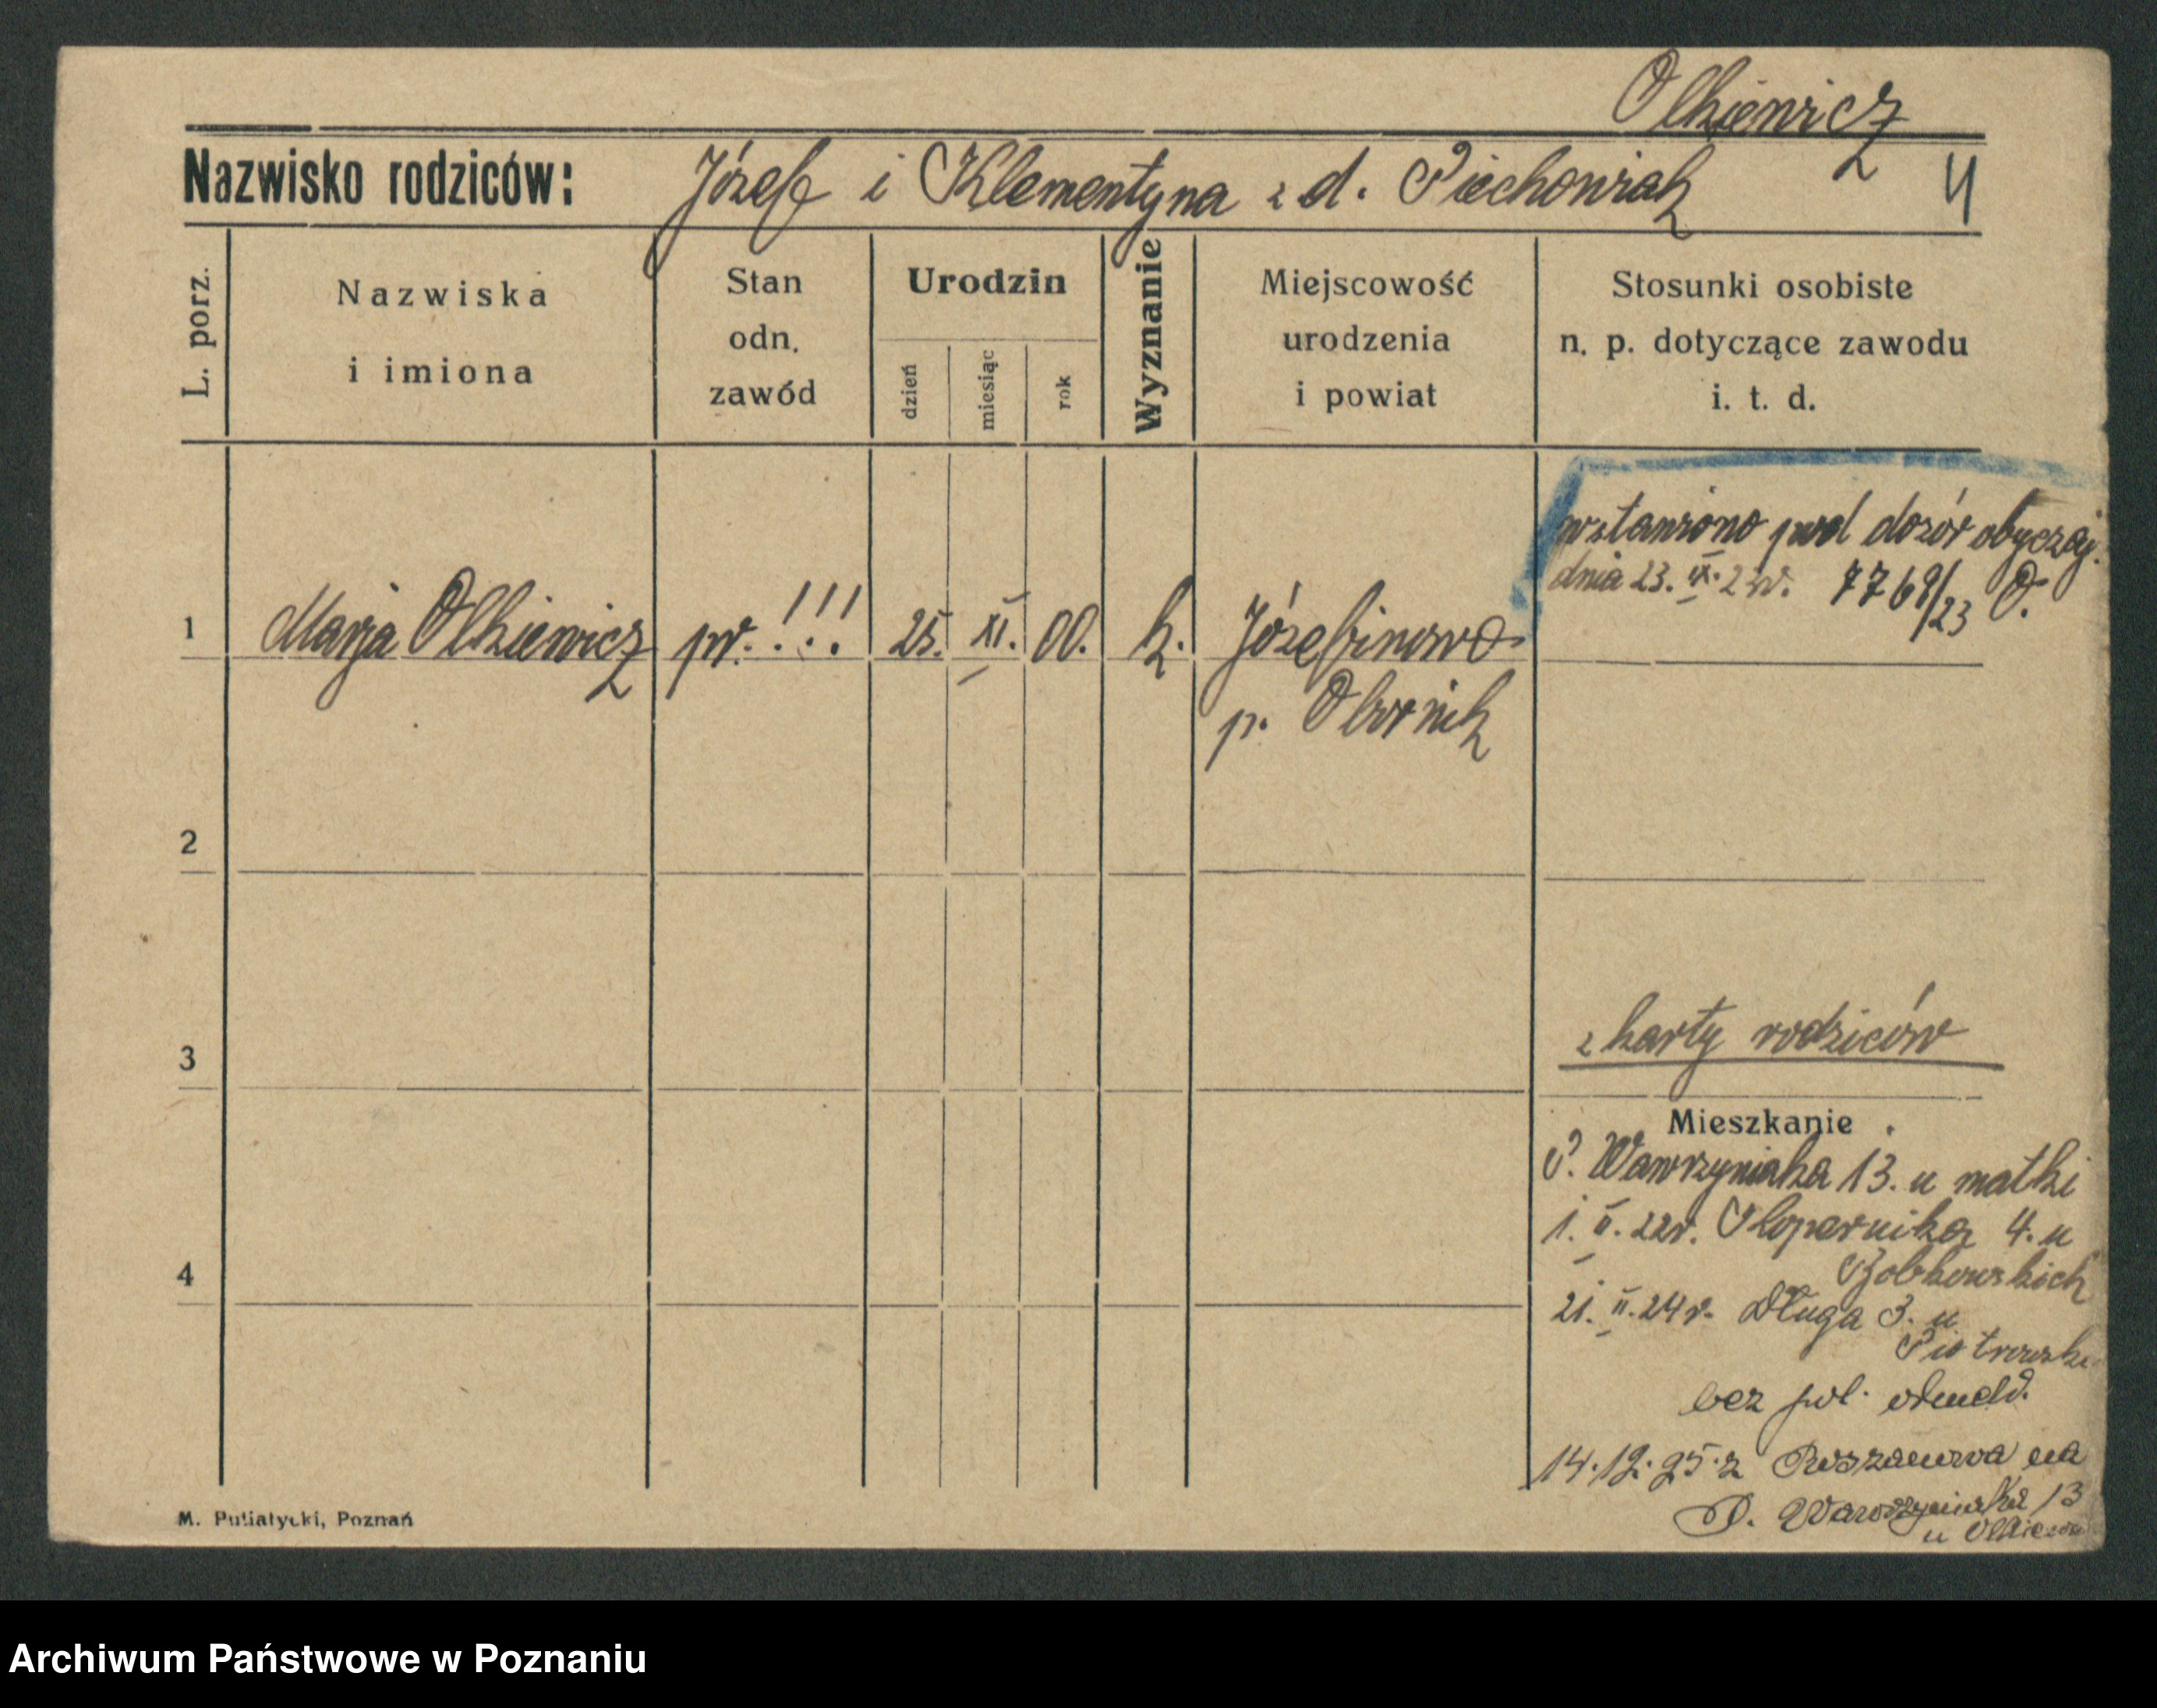 Olkiewicz
Nazwisko rodziców: Józef i Klementyna z d. Piechowiak 4
L. porz.
Nazwiska
i imiona
Stan
odn.
zawód
Urodzin
dzień
miesiąc
rok
Wyznanie
Miejscowość
urodzenia
i powiat
Stosunki osobiste
n. p. dotyczące zawodu
i. t. d.
wstawiono pod dozór obyczaj.
dnia 23. IX. 23r. 7768/23 O.
1 Marja Olkiewicz pr. !!! 25. XI. 00. k. Józefinowo
p. Obornik
2
3
z karty rodziców
Mieszkanie
P. Wawrzyniaka 13. u matki
1. II. 22r. Kopernika 4. u
21. II. 24r. Długa 3. u
4
bez pol. odmeld.
14.12.25 z na
P. Wawrzyniaka 13
u
M. Putiatycki, Poznań
Archiwum Państwowe w Poznaniu